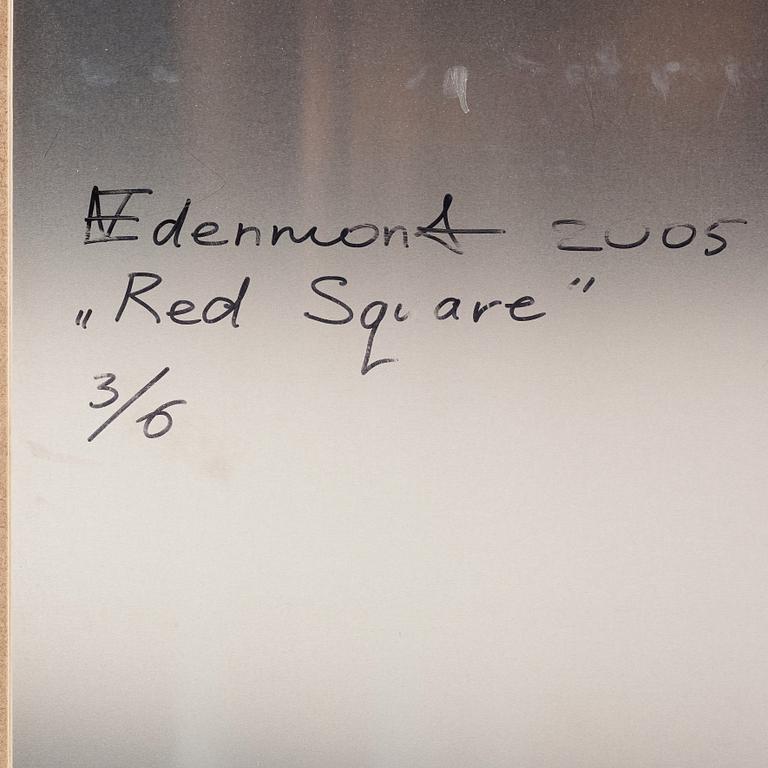 NEdenmont 2005
„Red Square”
3/6